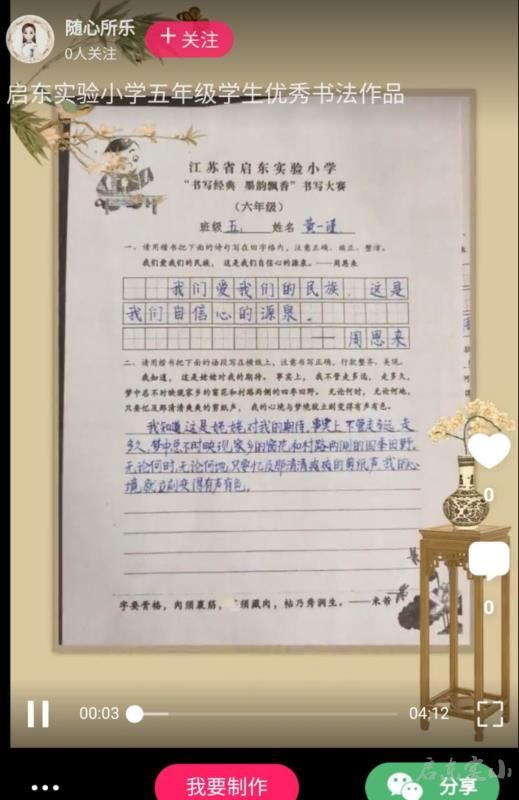 随心所乐
0人关注
+ 关注
启东实验小学五年级学生优秀书法作品
江苏省启东实验小学
“书写经典 墨韵飘香”书写大赛
（六年级）
班级 五. 姓名 黄一谨
一、请用楷书把下面的诗句写在田字格内，注意正确、端正、整洁。
我们爱我们的民族，这是我们自信心的源泉。——周恩来
我们爱我们的民族，这是
我们自信心的源泉。
——周恩来
二、请用楷书把下面的语段写在横线上，注意书写正确，行款整齐、美观。
我知道，这是姥姥对我的期待。事实上，我不管走多远，走多久，
梦中总不时映现家乡的窗花和村路两侧的四季田野。无论何时，无论何地，
只要忆及那清清爽爽的剪纸声，我的心境与梦境就立刻变得有声有色。
我知道这是姥姥对我的期待,事实上不管走多远走
多久,梦中总不时映现家乡的窗花和村路两侧的四季田野。
无论何时,无论何地,只要忆及那清清爽爽的剪纸声,我的心
境就立刻变得有声有色。
字要骨格，肉须裹筋，须藏肉，帖乃秀润生。——米芾
0
0
00:03
04:12
启东实小
我要制作
分享